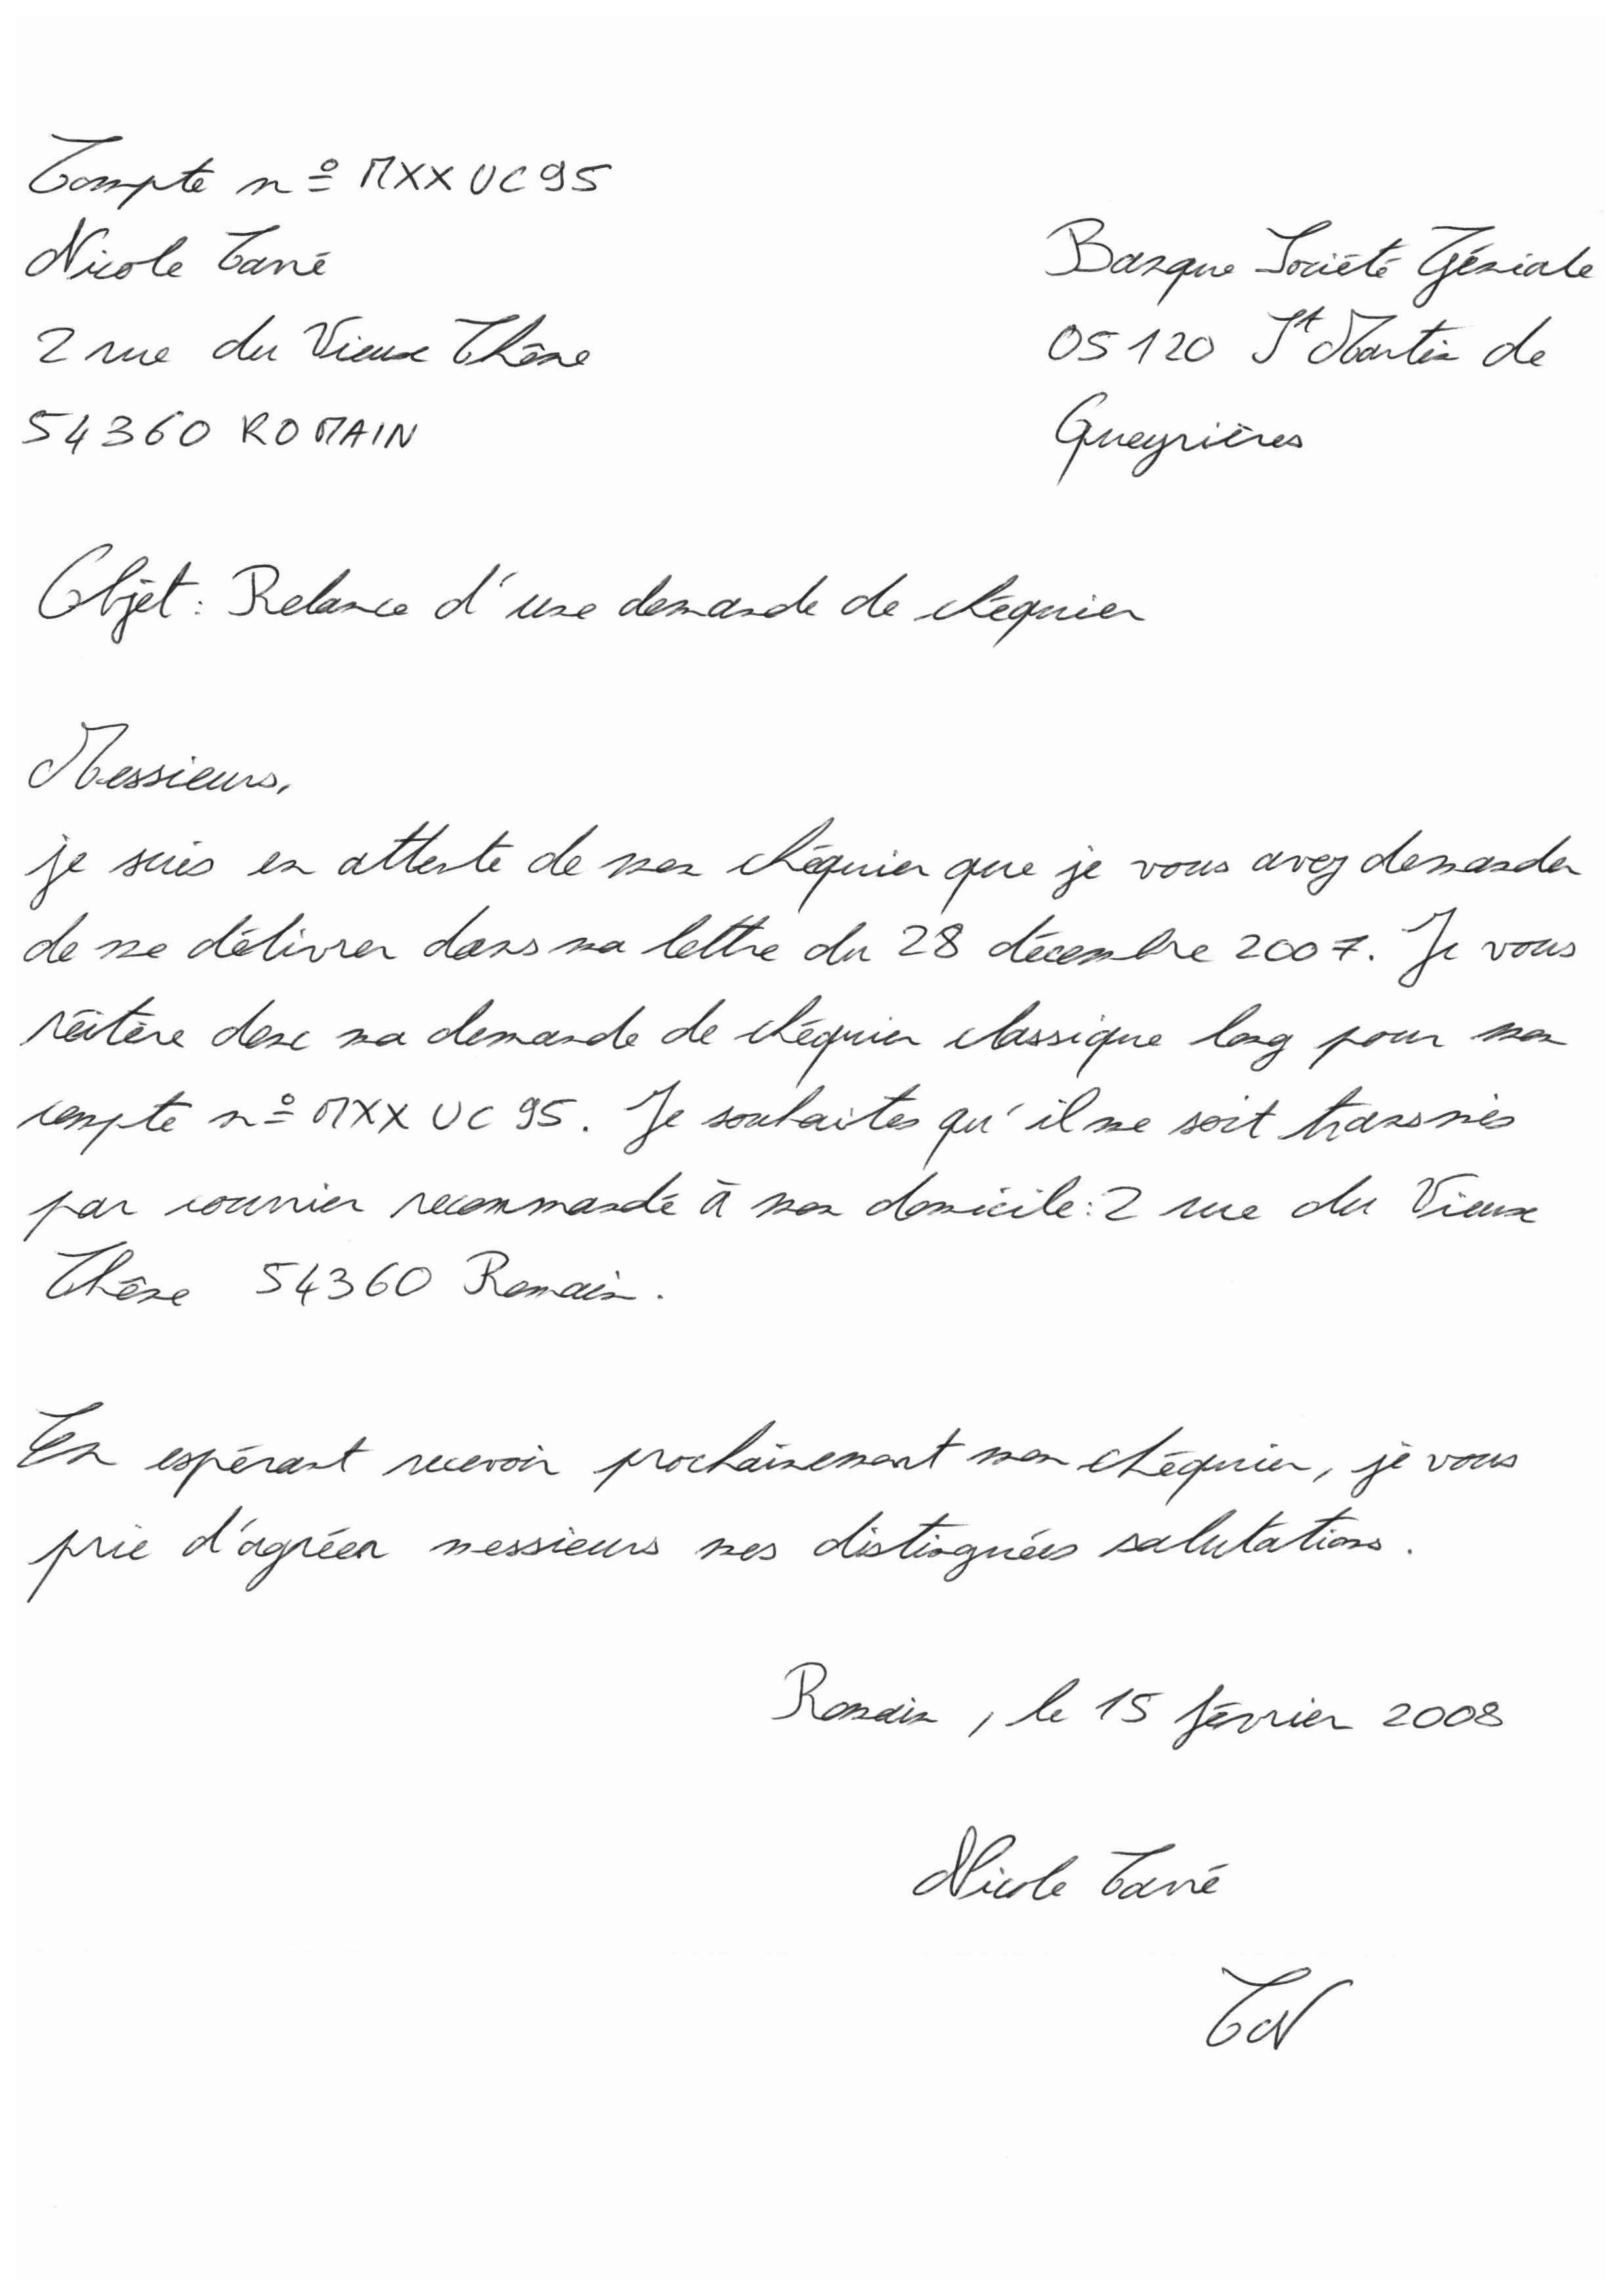 Compte n° MXXUC95
Nicole Carré
2 rue du Vieux Chêne
54360 ROMAIN
Banque Société Géniale
05120 St Martin de
Queyrières
Objet : Relance d'une demande de chéquier
Messieurs,
je suis en attente de mon chéquier que je vous avez demander
de me délivrer dans ma lettre du 28 décembre 2007. Je vous
réitère donc ma demande de chéquier classique long pour mon
compte n° MXXUC95. Je souhaites qu'il me soit transmis
par courrier recommandé à mon domicile : 2 rue du Vieux
Chêne 54360 Romain.
En espérant recevoir prochainement mon chéquier, je vous
prie d'agréer messieurs mes distinguées salutations.
Romain, le 15 février 2008
Nicole Carré
CN